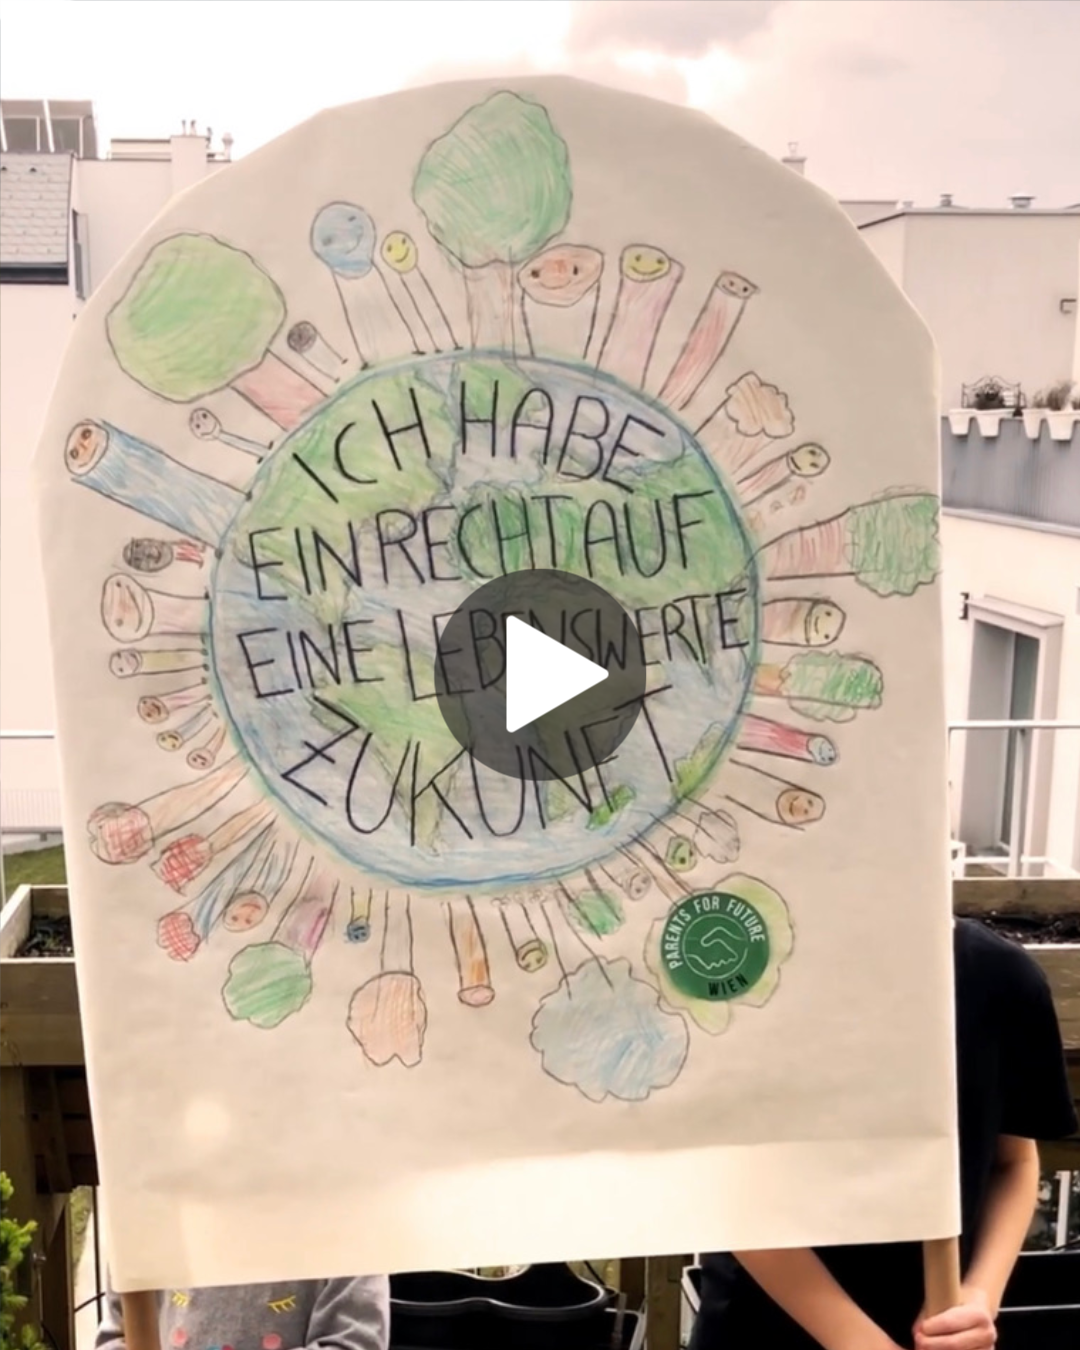 ICH HABE
EIN RECHT AUF
EINE LEBENSWERTE
ZUKUNFT
PARENTS FOR FUTURE
WIEN